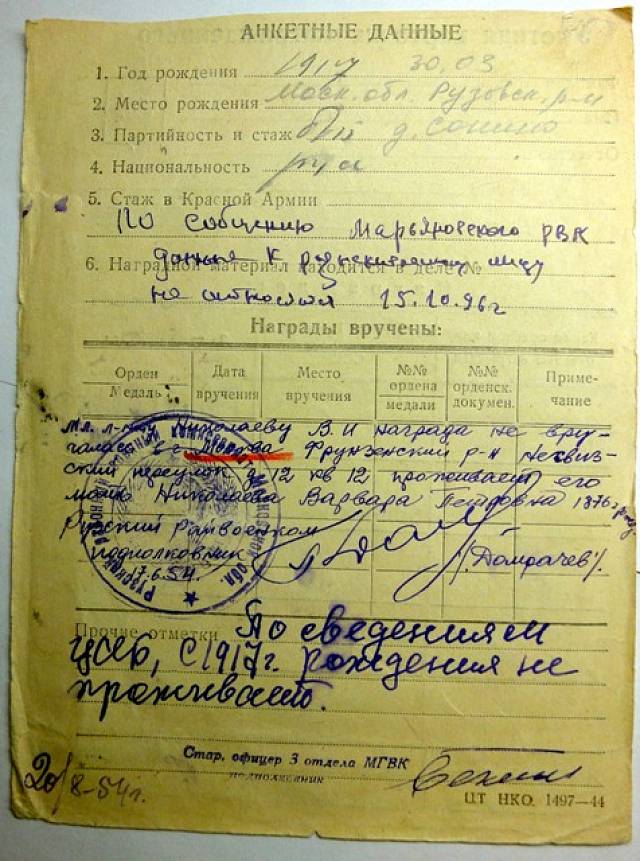 АНКЕТНЫЕ ДАННЫЕ
1. Год рождения 1917 30.03
2. Место рождения Моск. обл. Рузовск. р-н
3. Партийность и стаж д. Сонино
4. Национальность рус
5. Стаж в Красной Армии
По сообщению Марьяновского РВК
данные к разыскиваемому лицу
6. Наградной материал находится в деле №
не относятся 15.10.96г
Награды вручены:
Орден Медаль
Дата вручения
Место вручения
№№ ордена медали
№№ орденск. докумен.
Примечание
Мл. л-ту Николаеву В.И награда не вру-
чалась в г. Москва Фрунзенский р-н
ский переулок д 12 кв 12 проживает его
мать Николаева Варвара Петровна 1876
Рузский Райвоенком
подполковник /Домрачев/.
17.6.54.
Прочие отметки По сведениям
ЦСАБ, с 1917г. рождения не
проживает.
Стар. офицер 3 отдела МГВК
подполковник
20/8-54г.
ЦТ НКО. 1497—44